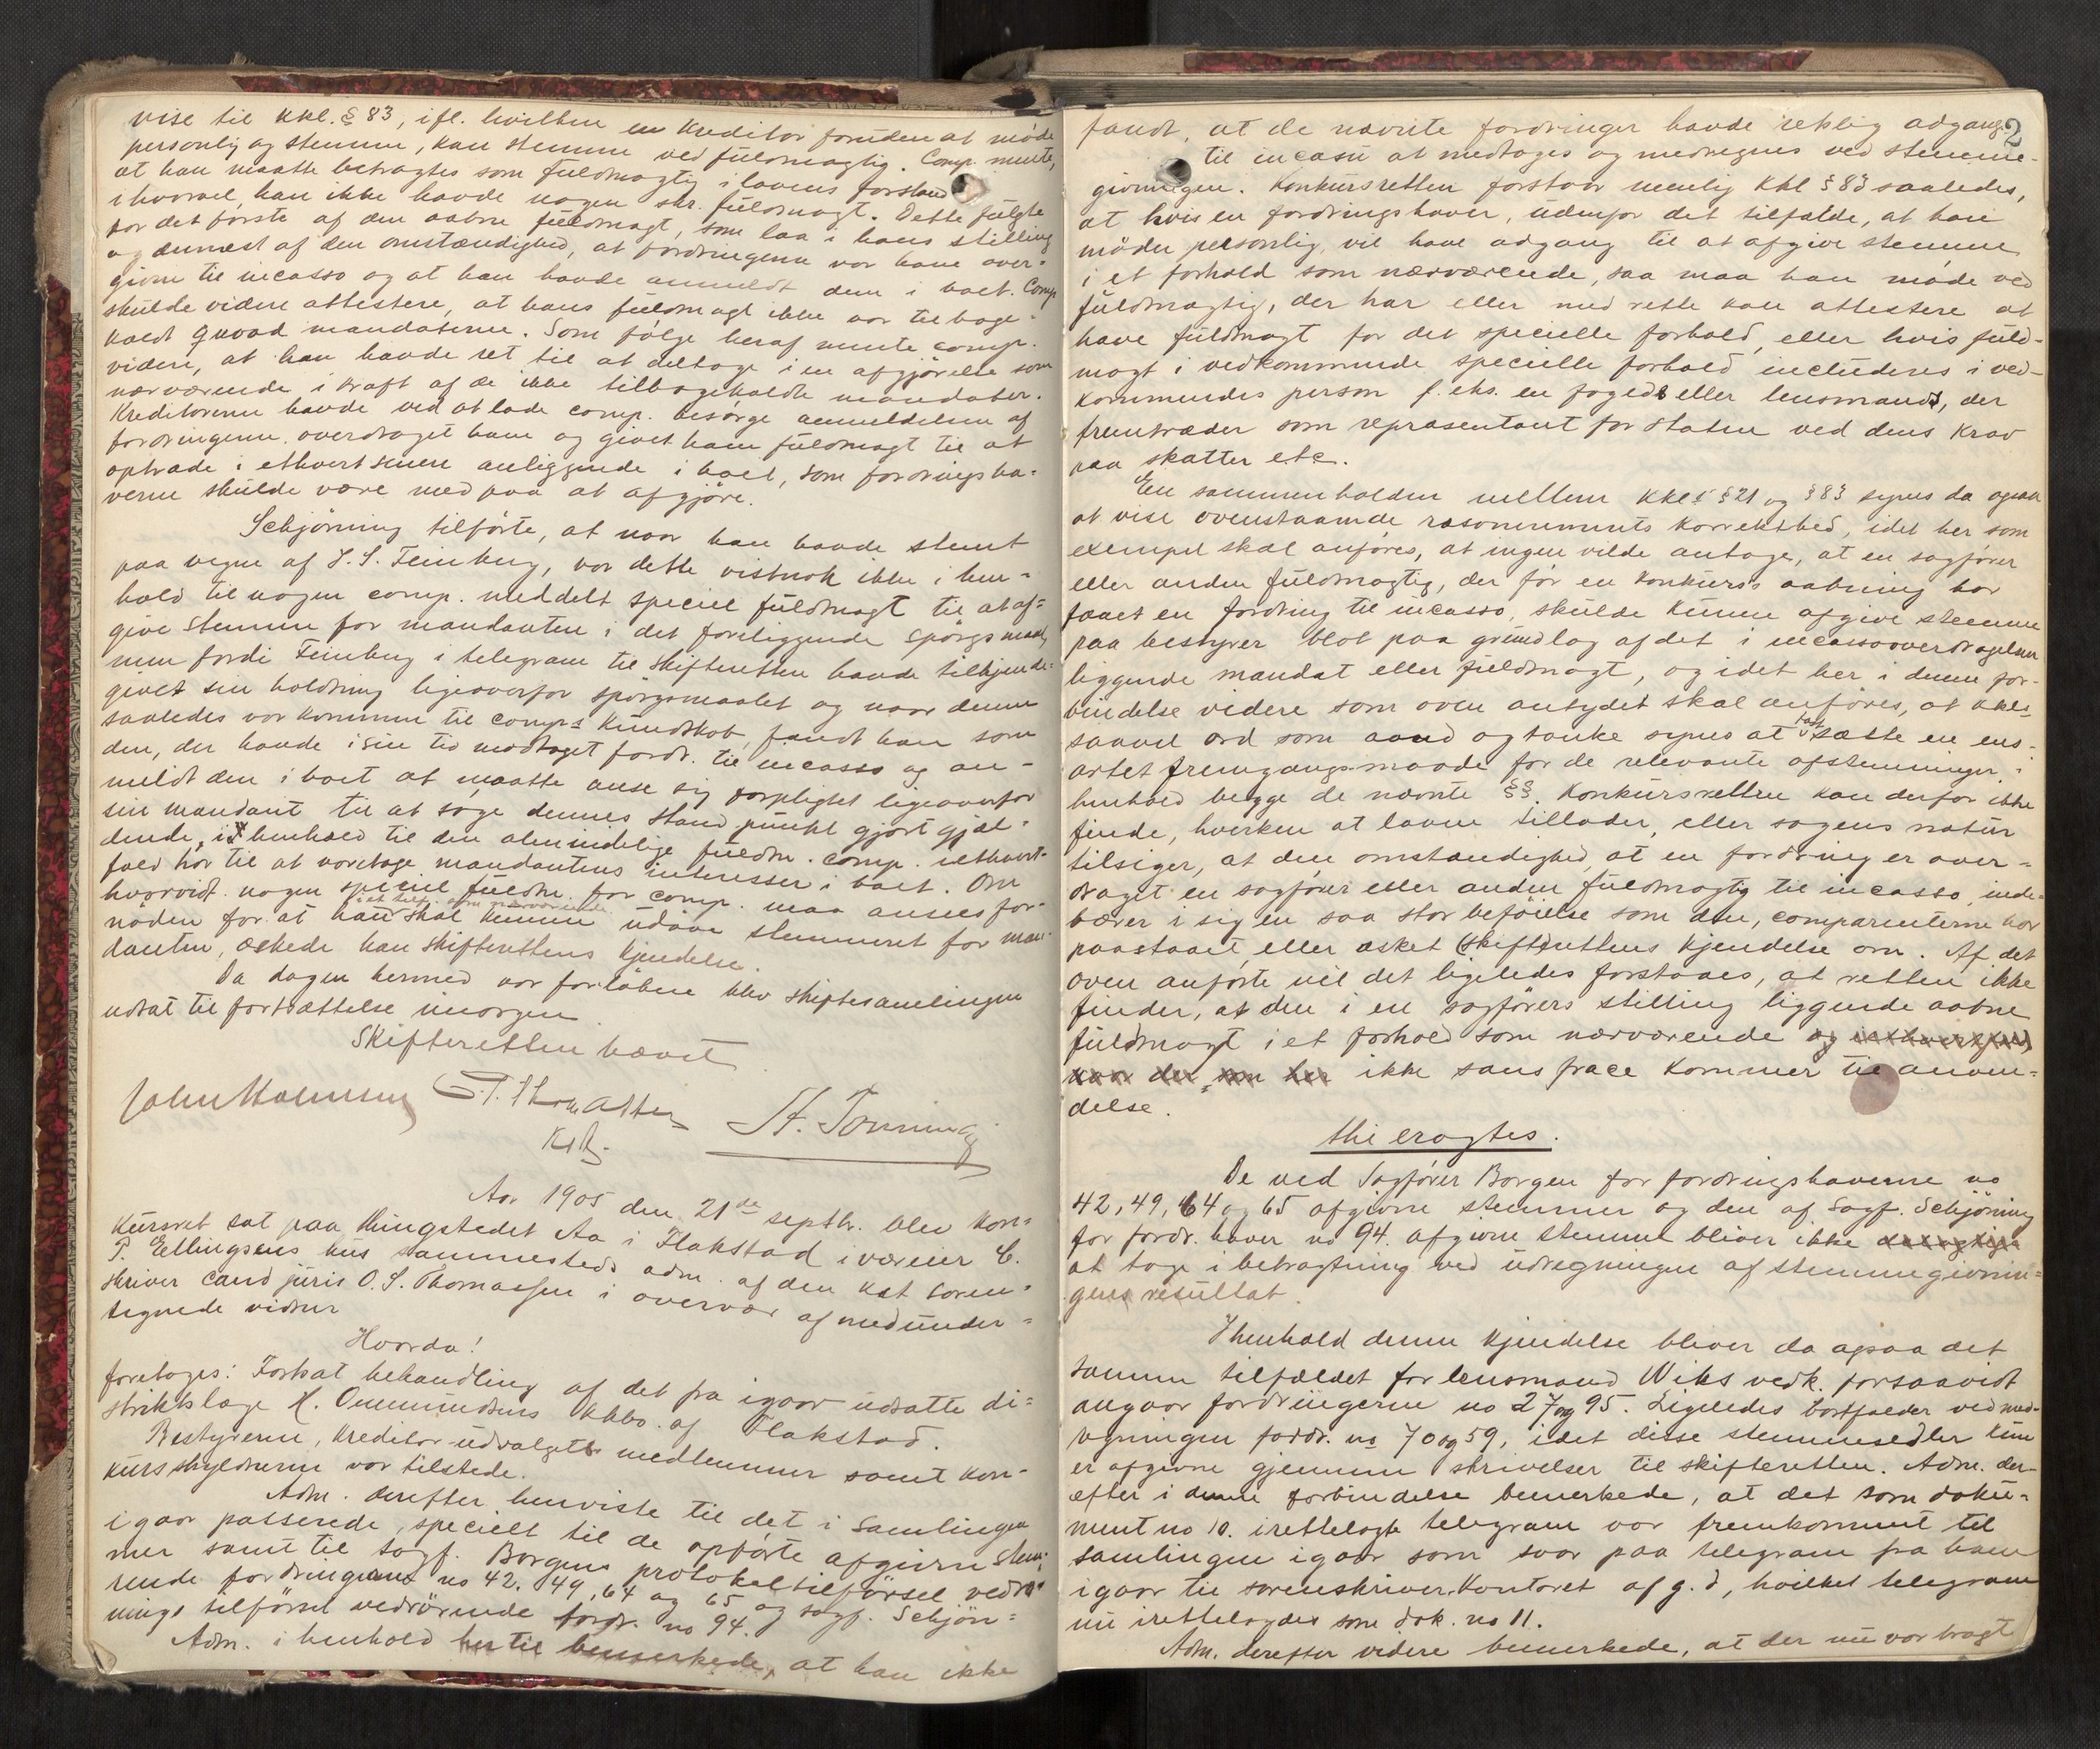 vise til kkl. § 83, ifl. hvilken en kreditor foruden at møde
personlig og stemme, kan stemme ved fuldmægtig. Comp. mente,
at han maatte betragtes som fuldmægtig i lovens forstand
ihvorvel han ikke havde nogen skr. fuldmagt. Dette fulgte
for det første af den aabne fuldmagt, som laa i hans stilling
og dernæst af den omstændighed, at fordringerne var ham over-
givne til incasso og at han havde anmeldt dem i boet. Comp.
skulde videre attestere, at hans fuldmagt ikke var tilbage-
kaldt quoad mandaterne. Som følge heraf mente comp.
videre, at han havde ret til at deltage i en afgjørelse som
nærværende i kraft af de ikke tilbagekaldte mandater.
Kreditorerne havde ved at lade comp. besørge anmeldelsen af
fordringerne overdraget ham og givet ham fuldmagt til at
optræde i ethvert senere anliggende i boet, som fordringsha-
verne skulde være med paa at afgjøre.
Schjöning tilførte, at naar han havde stemt
paa vegne af J. S. Feinberg, var dette vistnok ikke i hen-
hold til nogen comp. meddelt speciel fuldmagt til at af-
give stemme for mandanten i det foreliggende spørgsmaal,
men fordi Feinberg i telegram til skifteretten havde tilkjende-
givet sin holdning ligeoverfor spørgsmaalet og naar denne
saaledes var kommen til comp.s kundskab, fandt han som
den, der havde i sin tid modtaget fordr. til incasso og an-
meldt den i boet at maatte anse sig forpligtet ligeoverfor
sin mandant til at søge dennes standpunkt gjort gjæl-
dende, i henhold til den almindelige fuldm. comp. i ethvert-
fald har til at varetage mandantens interesser i boet. Om
hvorvidt nogen speciel fuldm. for comp. maa ansees for-
nøden for at han i et tilf. som nærværende skal kunne udøve stemmeret for man-
danten, æskede han skifterettens kjendelse.
Da dagen hermed var forløben blev skiftesamlingen
udsat til fortsættelse imorgen
Skifteretten hævet
John Malmsen O. S. Thomassen H. Tönning
Kst.
Aar 1905 den 21de septbr. blev kon-
kursret sat paa thingstedet Aa i Flakstad i væreier C.
P. Ellingsens hus sammesteds adm. af den kst soren-
skriver cand juris O. S. Thomassen i overvær af medunder-
tegnede vidner
Hvorda!
foretoges: Fortsat behandling af det fra igaar udsatte di-
striktslæge K. Ommundsens kkbo. af Flakstad.
Bestyrerne, kreditorudvalgets medlemmer samt kon-
kursskyldneren var tilstede.
Adm. derefter henviste til det i samlingen
igaar passerede, specielt til de opførte afgivne stem-
mer samt til sagf. Borgens protokoltilførsel vedrø-
rende fordringerne no 42, 49, 64 og 65 og sagf. Schjön-
nings tilførsel vedrørende fordr. no 94.
Adm. i henhold hertil bemerkede, at han ikke
2
fandt, at de nævnte fordringer havde retslig adgang
til in casu at medtages og medregnes ved stemme-
givningen. Konkursretten forstaar nemlig Kkl § 83 saaledes,
at hvis en fordringshaver, udenfor det tilfælde, at han
møder personlig, vil have adgang til at afgive stemme
i et forhold som nærværende, saa maa han møde ved
fuldmægtig, der har eller med rette kan attestere at
have fuldmagt for det specielle forhold, eller hvis fuld-
magt i vedkommende specielle forhold includeres i ved-
kommendes person f. eks. en foged eller lensmand, der
fremtræder som repræsentant for staten ved dens krav
paa skatter etc.
En sammenholden mellem kkls § 21 og § 83 synes da ogsaa
at vise ovenstaaende ræsonnements korrekthed, idet her som
exempel skal anføres, at ingen vilde antage, at en sagfører
eller anden fuldmægtig, der før en konkurs's aabning har
faaet en fordring til incasso, skulde kunne afgive stemme
paa bestyrer blot paa grundlag af det i incassooverdragelsen
liggende mandat eller fuldmagt, og idet her i denne for-
bindelse videre som oven antydet skal anføres, at kkls
saavel ord som aand og tanke synes at fastsætte en ens-
artet fremgangsmaade for de relevante afstemninger i
henhold begge de nævnte §§. Konkursretten kan derfor ikke
finde, hverken at loven tillader, eller sagens natur
tilsiger, at den omstændighed, at en fordring er over-
draget en sagfører eller anden fuldmægtig til incasso, inde-
bærer i sig en saa stor beføielse som den, comparenterne har
paastaaet eller æsket (skifte)rettens kjendelse om. Af det
oven anførte vil det ligeledes forstaaes, at retten ikke
finder, at den i en sagførers stilling liggende aabne
fuldmagt i et forhold som nærværende og
naar der som her ikke sans frace kommer til anven-
delse.
thi eragtes.
De ved Sagfører Borgen for fordringshaverne no
42, 49, 64 og 65 afgivne stemmer og den af Sagf. Schjöning
for fordr. haver no 94. afgivne stemme bliver ikke
at tage i betragtning ved udregningen af stemmegivnin-
gens resultat.
I henhold denne kjendelse bliver da ogsaa det
samme tilfældet for lensmand Wiks vedk. forsaavidt
angaar fordringerne no 27 og 95. Ligeledes bortfalder ved med-
regningen fordr. no 70 og 59, idet disse stemmesedler kun
er afgivne gjennem skrivelser til skifteretten. Adm. der-
efter i denne forbindelse bemerkede, at det som doku-
ment no 10. irettelagte telegram var fremkommet til
samlingen igaar som svar paa telegram fra ham
igaar til sorenskriverkontoret af g. d., hvilket telegram
nu irettelagdes som dok. no 11.
Adm. derefter videre bemerkede, at der nu var bragt